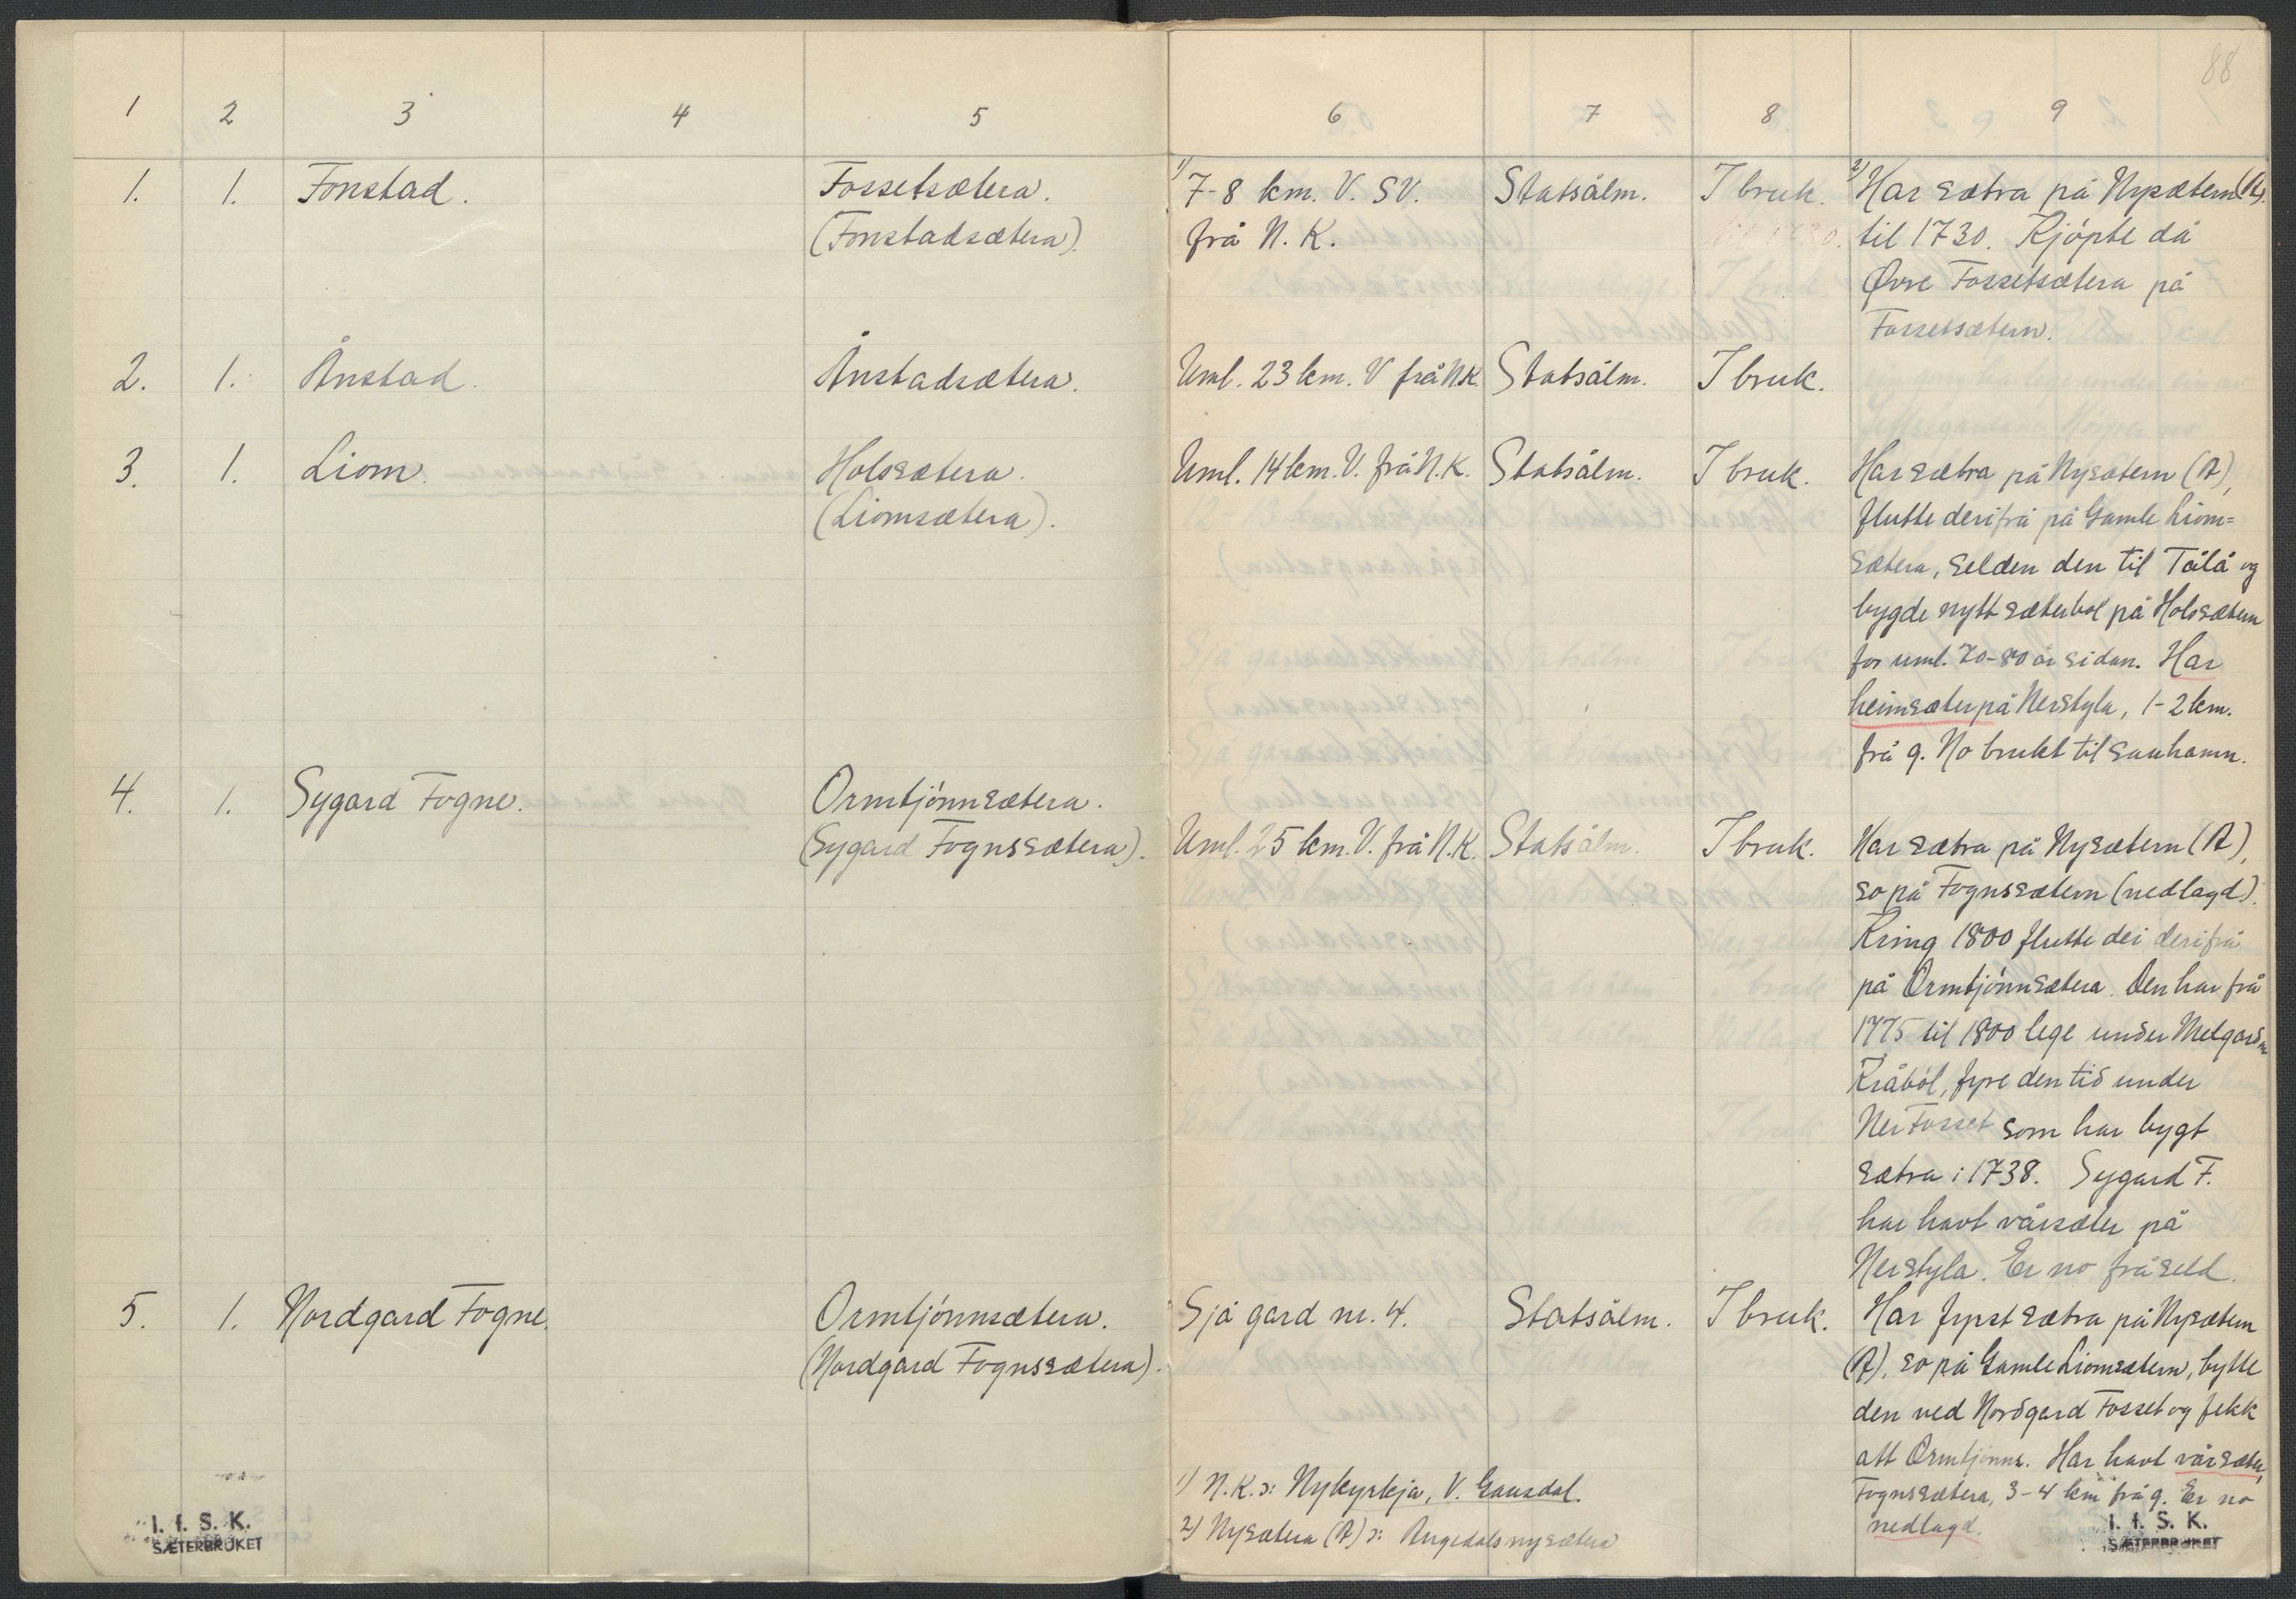 88
1 2 3 4 5 6 7 8 9
1. 1. Fonstad. Fossetsætera. ¹) 7-8 km. V. SV. Statsålm. I bruk. ²) Har sætra på Nysætern (A).
(Fonstadsætera). frå N. K. til 1730. Kjøpte då
Øvre Fossetsætera på
Fossetsætern.
2. 1. Ånstad. Ånstadsætera. Uml. 23 km. V frå N.K. Statsålm. I bruk.
3. 1. Liom. Holssætera. Uml. 14 km. V. frå N.K. Statsålm. I bruk. Har sætra på Nysætern (A),
(Liomsætera). flutte derifrå på Gamle Liom=
sætera, selden den til Tålå og
bygde nytt sæterbol på Holssætern
for uml. 70-80 år sidan. Har
heimsæter på Nerstyla, 1-2 km.
frå g. No brukt til sauhamn.
4. 1. Sygard Fogne. Ormtjønnsætera.
(Sygard Fognssætera). Uml. 25 km. V. frå N.K. Statsålm. I bruk. Har sætra på Nysætern (A),
so på Fognssætern (nedlagd).
Kring 1800 flutte dei derifrå
på Ormtjønnsætera. Den har frå
1775 til 1800 lege under Melgard
Kråbøl, fyre den tid under
Ner Fosset som har bygt
sætra i 1738. Sygard F.
har havt vårsæter på
Nerstyla. Er no fråseld.
5. 1. Nordgard Fogne. Ormtjønnsætera. Sjå gard nr. 4. Statsålm. I bruk. Har fyrst sætra på Nysætern
(Nordgard Fognssætera). (A), so på Gamle Liomsætern, bytte
den ved Nordgard Fosset og fekk
att Ormtjønns. Har havt vårsæter,
Fognssætera, 3-4 km frå g. Er no
nedlagd.
¹) N.K. ɔ: Nykyrkja, V. Gausdal.
²) Nysætera (A) ɔ: Augedalsnysætera
I. f. S. K.
SÆTERBRUKET
I. f. S. K.
SÆTERBRUKET